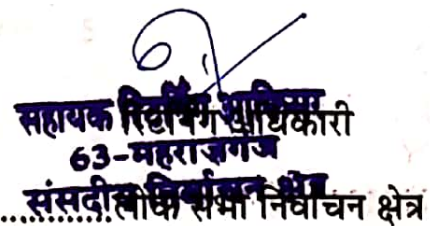 सहायक रिटर्निंग आफिसर
रिटर्निंग अधिकारी
63-महराजगंज
संसदीय निर्वाचन क्षेत्र
............लोक सभा निर्वाचन क्षेत्र